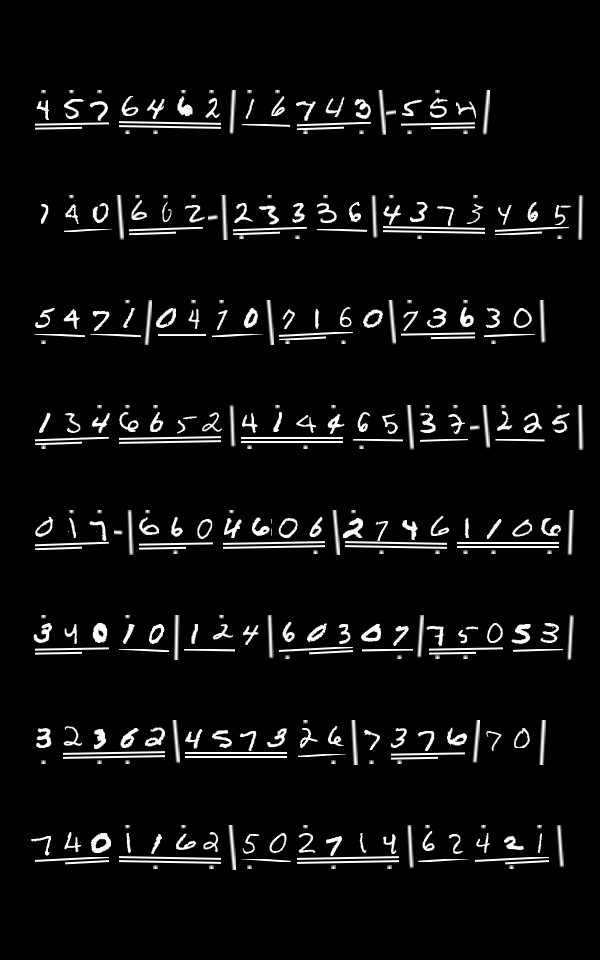 4576462|16743|-552|
740|602-|23336|4373465|
5471|0470|7160|73630|
1346652|414465|37-|225|
017-|6604606|27461106|
34010|124|60307|75053|
32362|457326|7376|70|
7401162|502714|62421|